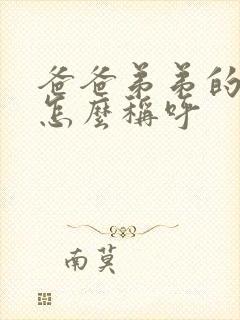 爸爸弟弟的
怎麼稱呼
南莫